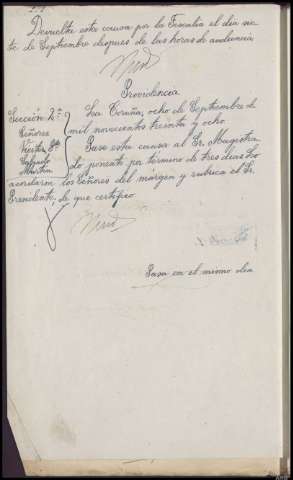 Devuelta esta causa por la Fiscalía el día sie-
te de Septiembre despues de las horas de audiencia
Providencia
Sección 2ª La Coruña, ocho de Septiembre de
Señores mil novecientos treinta y ocho
Pase esta causa al Sr. Magistra-
do ponente por termino de tres días Lo
acordaron los Señores del márgen y rubrica el Sr.
Presidente, de que certifico
Pasa en el mismo día